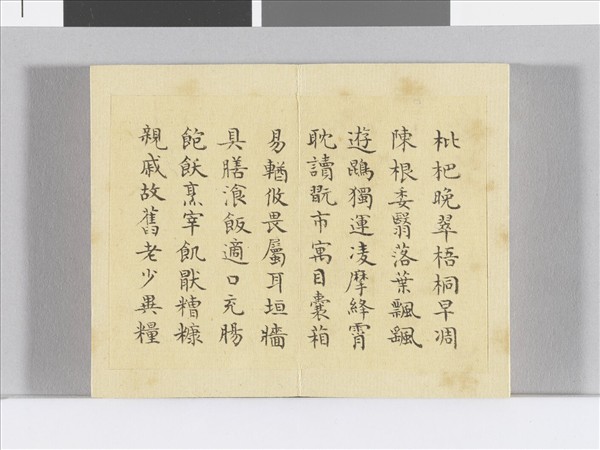 枇杷晚翠梧桐早凋
陳根委翳落葉飄颻
遊鵾獨運凌摩絳霄
耽讀翫市寓目囊箱
易輶攸畏屬耳垣牆
具膳湌飯適口充腸
飽飫烹宰飢猒糟糠
親戚故舊老少異糧